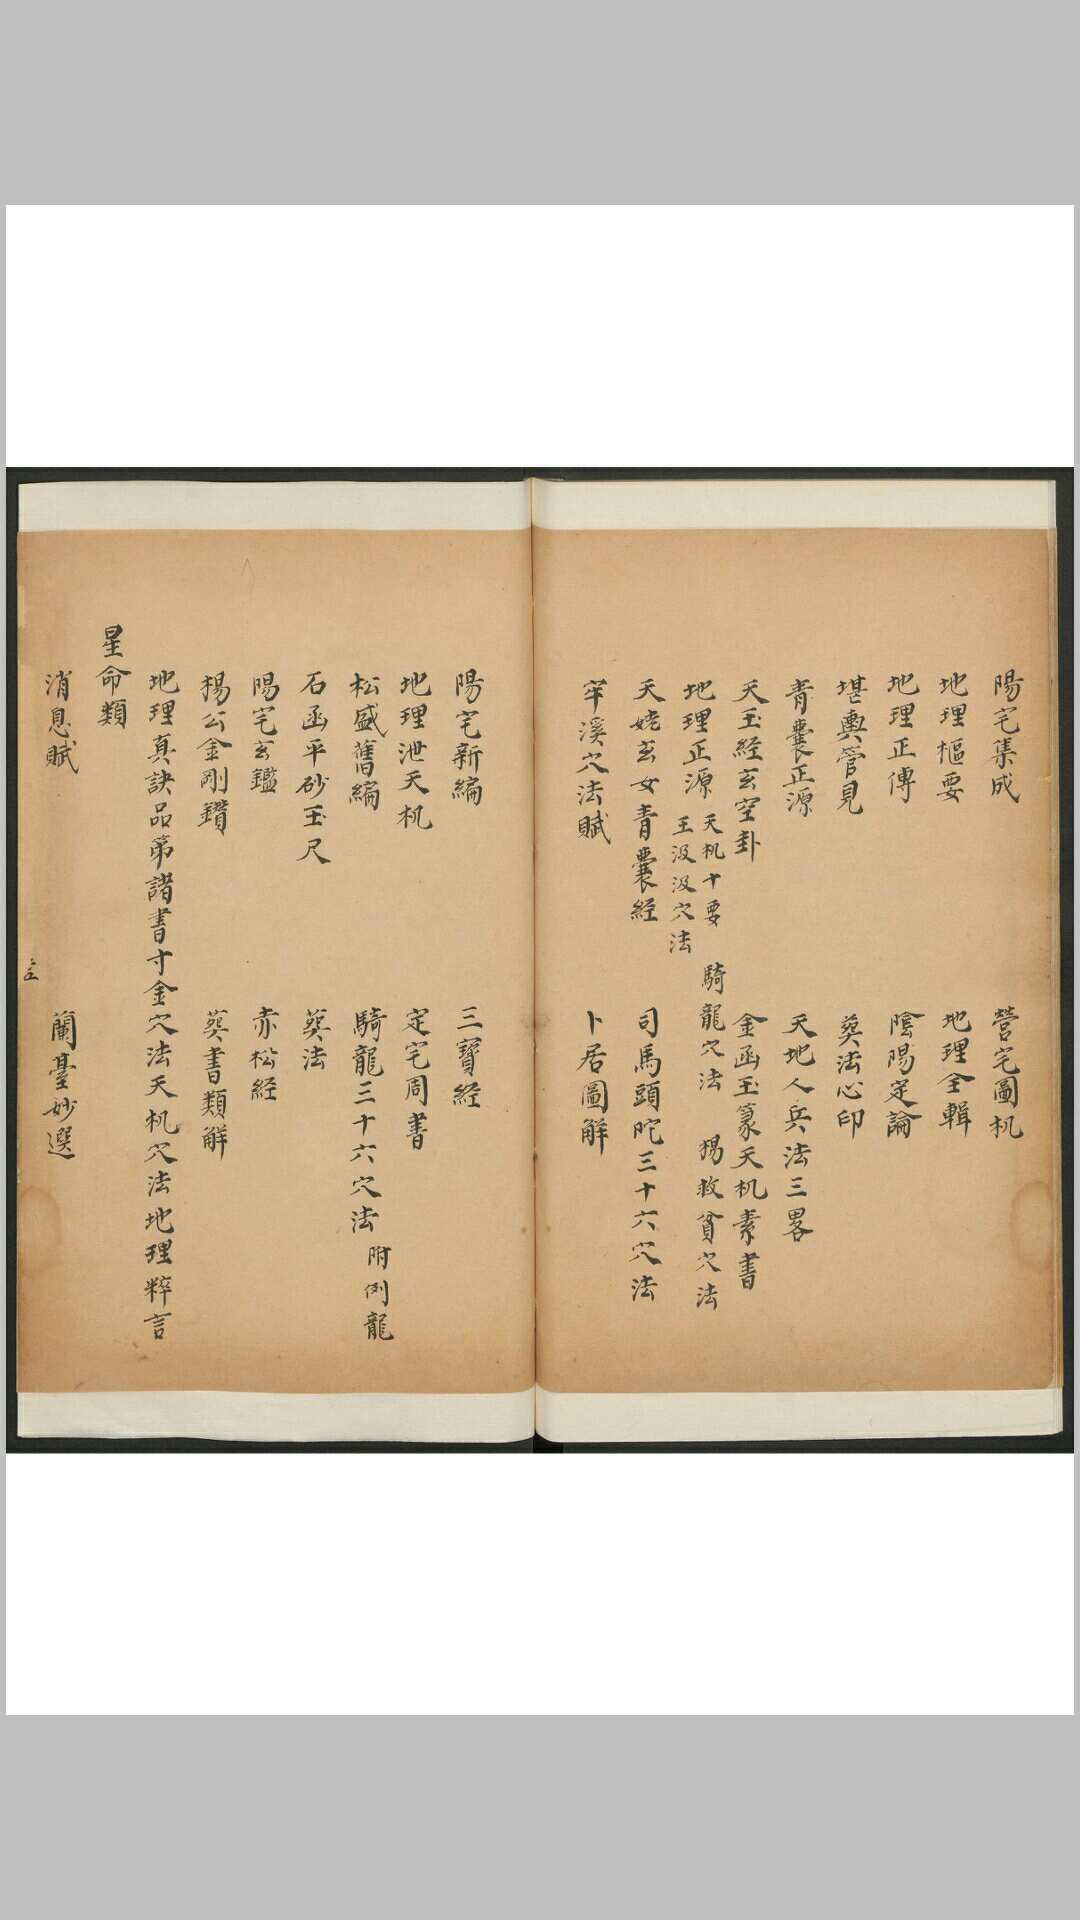 陽宅集成 營宅圖机
地理樞要 地理全輯
地理正傳 陰陽定論
堪輿管見 葬法心印
青囊正源 天地人兵法三畧
天玉經玄空卦 金函玉篆天机素書
地理正源 天机十要 王汲汲穴法 騎龍穴法 楊救貧穴法
天姥玄女青囊經 司馬頭陀三十六穴法
牢溪穴法賦 卜居圖解
陽宅新編 三寳經
地理泄天机 定宅周書
松盛舊編 騎龍三十六穴法 附例龍
石函平砂玉尺 葬法
陽宅玄鑑 赤松經
楊公金剛鑽 葬書類解
地理真訣品第諸書寸金穴法天机穴法地理粹言
星命類
消息賦 蘭臺妙選